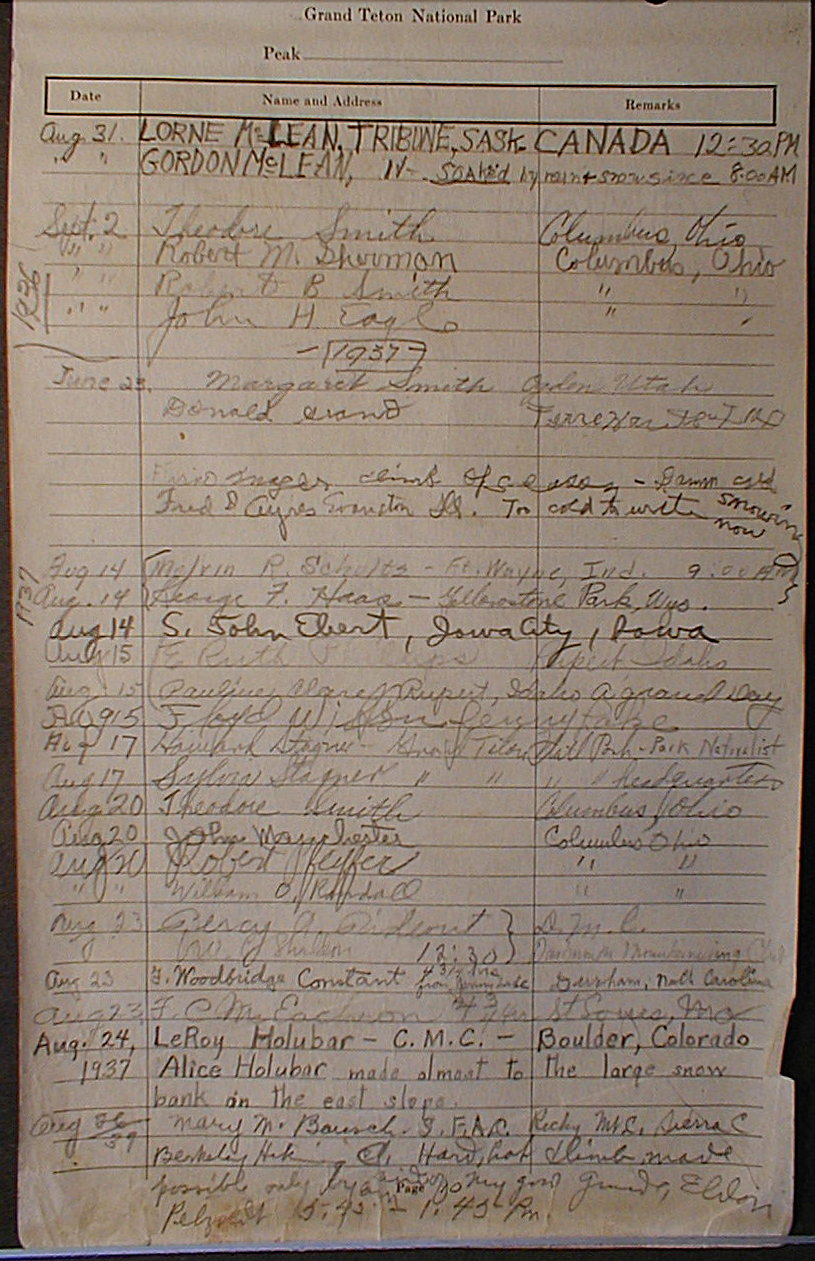 Grand Teton National Park
Peak
Date Name and Address Remarks
Aug. 31. LORNE McLEAN, TRIBUNE, SASK. CANADA 12:30 PM
" " GORDON McLEAN, " - Soaked by rain & snow since 8:00 AM
Sept. 2 Theodore Smith Columbus, Ohio
" " Robert M. Shooman Columbus, Ohio
" " Robert B Smith " "
" " John H Eagle " "
1936
1937
June 23. Margaret Smith Ogden Utah
Donald Grand Terre Haute Ind
climb of season - Damn cold
Fred D Ayres Evanston Ill. Too cold to write snowing now
1937
Aug 14 Melvin R. Schultz - Ft. Wayne, Ind. 9:00 AM
Aug. 14 George F. Haas - Yellowstone Park, Wyo.
Aug 14 S. John Ebert, Iowa City, Iowa
Aug 15 Ruth Rupert Idaho
Aug 15 Pauline Clare, Rupert, Idaho A grand Day
Aug 15 Floyd Wilson Jenny Lake
Aug 17 Howard Stagner - Grand Teton Natl Park - Park Naturalist
Aug 17 Sylvia Stagner " " " " headquarters
Aug 20 Theodore Smith Columbus, Ohio
Aug 20 John Manchester Columbus Ohio
Aug 20 Robert Pfeiffer " "
" " William O. Randall " "
Aug 23 Percy A. Rideout D.M.C.
" W. Sheldon 12:30 Dartmouth Mountaineering Club
Aug 23 F. Woodbridge Constant 4 3/4 hrs from Jenny Lake Durham, North Carolina
Aug 23, F. C. McEachron 4 3/4 hrs St Louis, Mo
Aug. 24, LeRoy Holubar - C.M.C. - Boulder, Colorado
1937 Alice Holubar made almost to the large snow
bank on the east slope.
Aug 26 Mary M. Bausch. Rocky Mt C, Sierra C
Berkeley Hiking Cl. Hard, hot climb made
possible only by my good guide, Eldon
Petzoldt 5:45 - 1:45 Pm.
Page